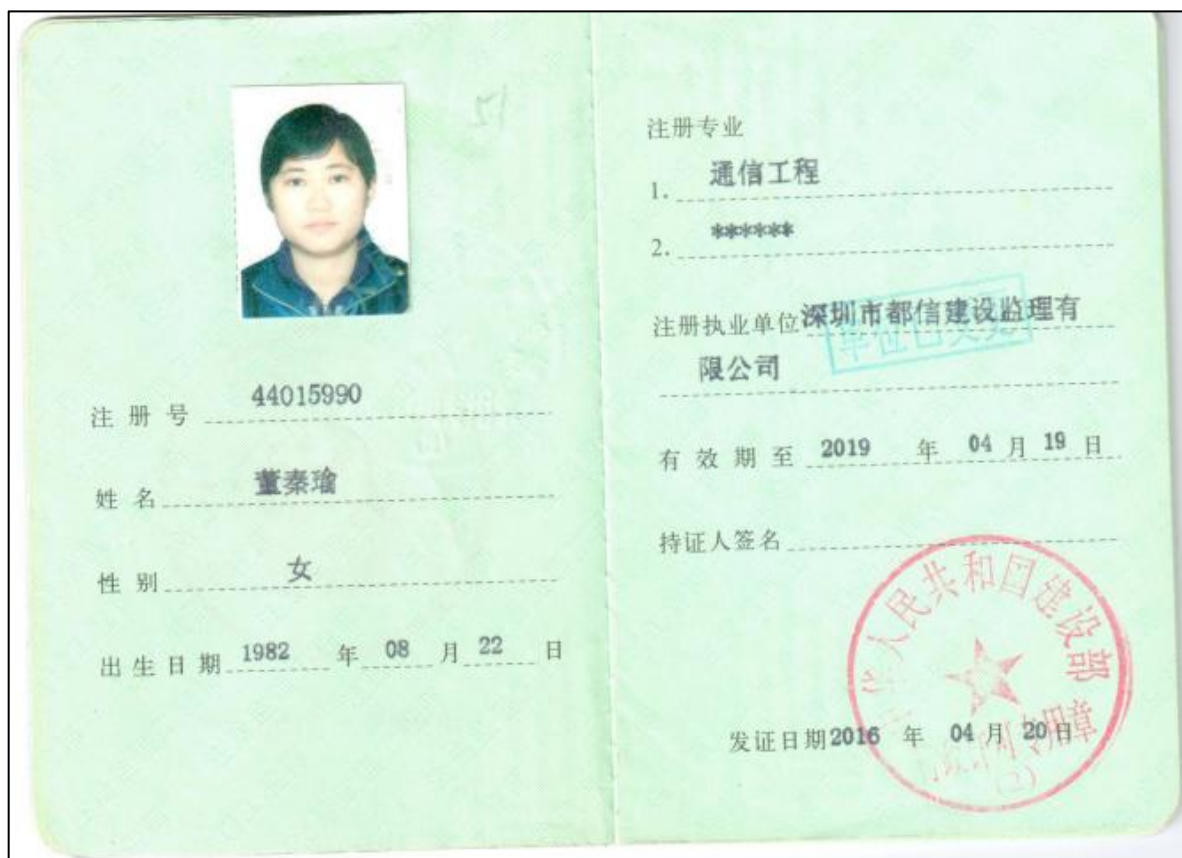 注册号 44015990
姓名 董秦瑜
性别 女
出生日期 1982 年 08 月 22 日
注册专业
1. 通信工程
2. ******
注册执业单位 深圳市都信建设监理有
限公司
有效期至 2019 年 04 月 19 日
持证人签名
发证日期 2016 年 04 月 20 日
中华人民共和国建设部
专用章
(2)